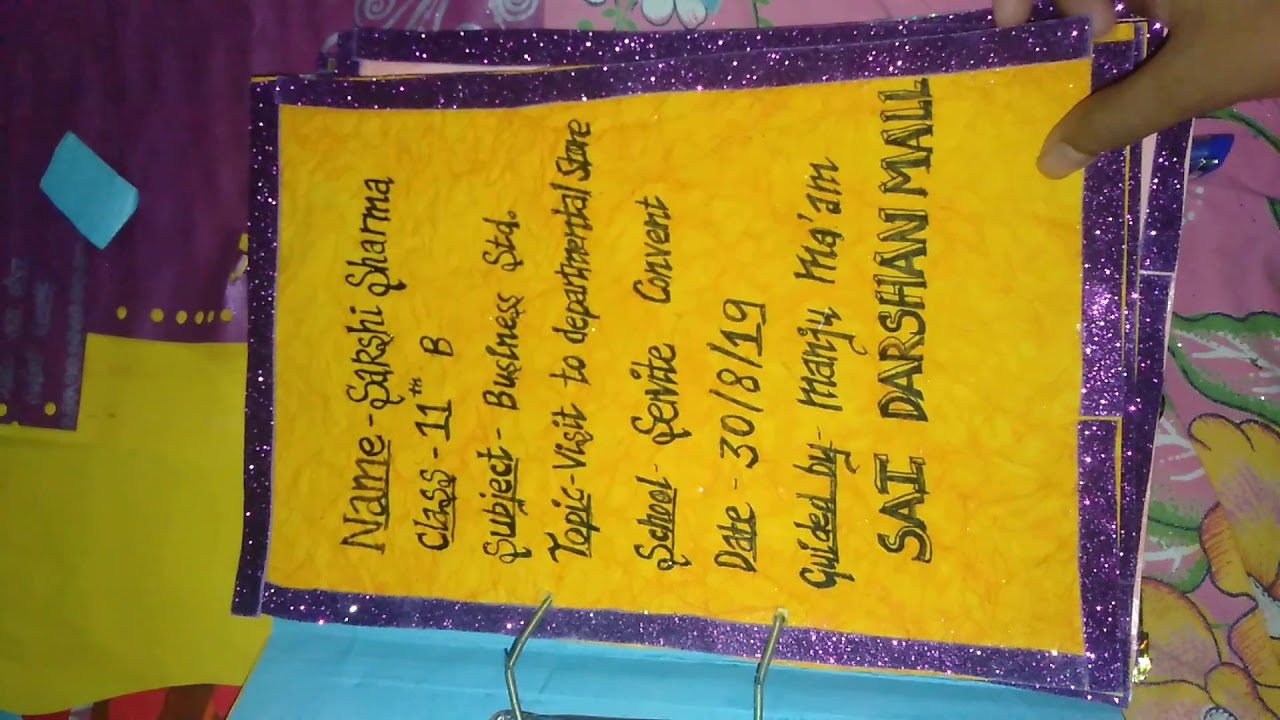 Name - Sakshi Sharma
Class - 11th B
Subject - Business Std.
Topic - Visit to departmental Store
School - Servite Convent
Date - 30/8/19
Guided by - Manju Ma'am
SAI DARSHAN MALL